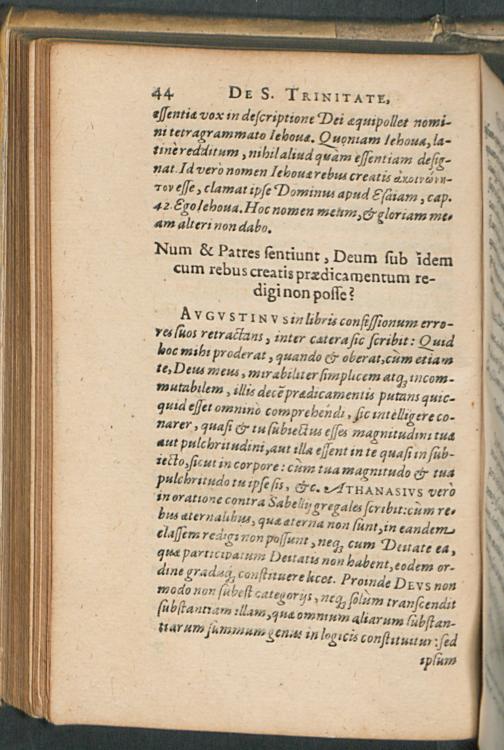 44 DE S. TRINITATE,
essentiæ vox in descriptione Dei æquipollet nomi-
ni tetragrammato Iehoua. Quoniam Iehoua, la-
tinè redditum, nihil aliud quàm essentiam desig-
nat. Id verò nomen Iehoua rebus creatis ἀκοινώνη-
τον esse, clamat ipse Dominus apud Esaiam, cap.
42. Ego Iehoua. Hoc nomen meum, & gloriam me-
am alteri non dabo.
Num & Patres sentiunt, Deum sub idem
cum rebus creatis prædicamentum re-
digi non posse?
AVGVSTINVS in libris confessionum erro-
res suos retractans, inter cætera sic scribit: Quid
hoc mihi proderat, quando & oberat, cùm etiam
te, Deus meus, mirabiliter simplicem atq́; incom-
mutabilem, illis decẽ prædicamentis putans quic-
quid esset omninò comprehendi, sic intelligere co-
narer, quasi & tu subiectus esses magnitudini tuæ
aut pulchritudini, aut illa essent in te quasi in sub-
iecto, sicut in corpore: cùm tua magnitudo & tua
pulchritudo tu ipse sis, &c. ATHANASIVS verò
in oratione contra Sabellij gregales scribit: cùm re-
bus æternalibus, quæ æterna non sunt, in eandem
classem redigi non possunt, neq́; cum Deitate ea,
quæ participatum Deitatis non habent, eodem or-
dine graduq́; constituere licet. Proinde DEVS non
modo non subest categorijs, neq́; solùm transcendit
substantiam illam, quæ omnium aliarum substan-
tiarum summum genus in logicis constituitur: sed
ipsum